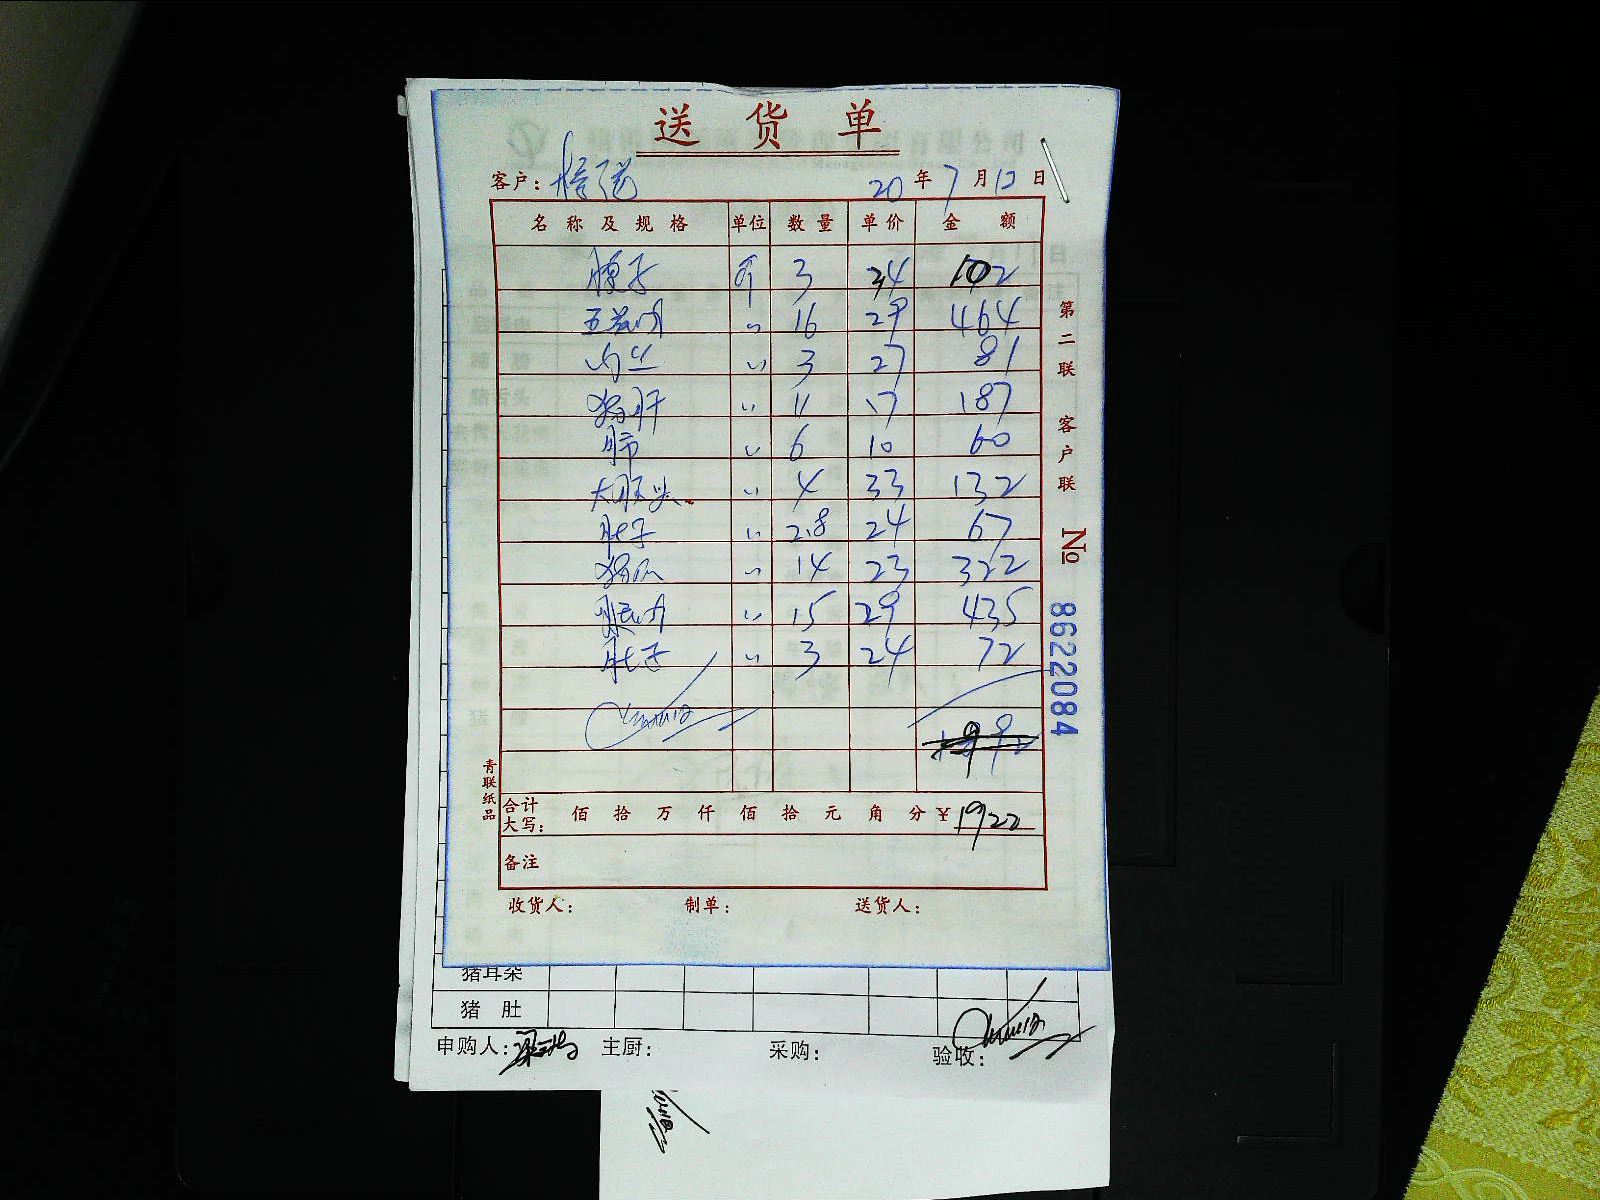 送货单
客户:
20年7月12日
名称及规格 单位 数量 单价 金额
斤 3 34 102
五花肉 〃 16 29 464
肉丝 〃 3 27 81
猪肝 〃 11 17 187
肺 〃 6 10 60
大肠头 〃 4 33 132
肚子 〃 2.8 24 67
〃 14 23 322
〃 15 29 435
肚子 〃 3 24 72
合计大写: 佰 拾 万 仟 佰 拾 元 角 分 ¥1922
备注
收货人: 制单: 送货人:
第二联 客户联
№ 8622084
青联纸品
猪耳朵
猪肚
申购人: 主厨: 采购: 验收: